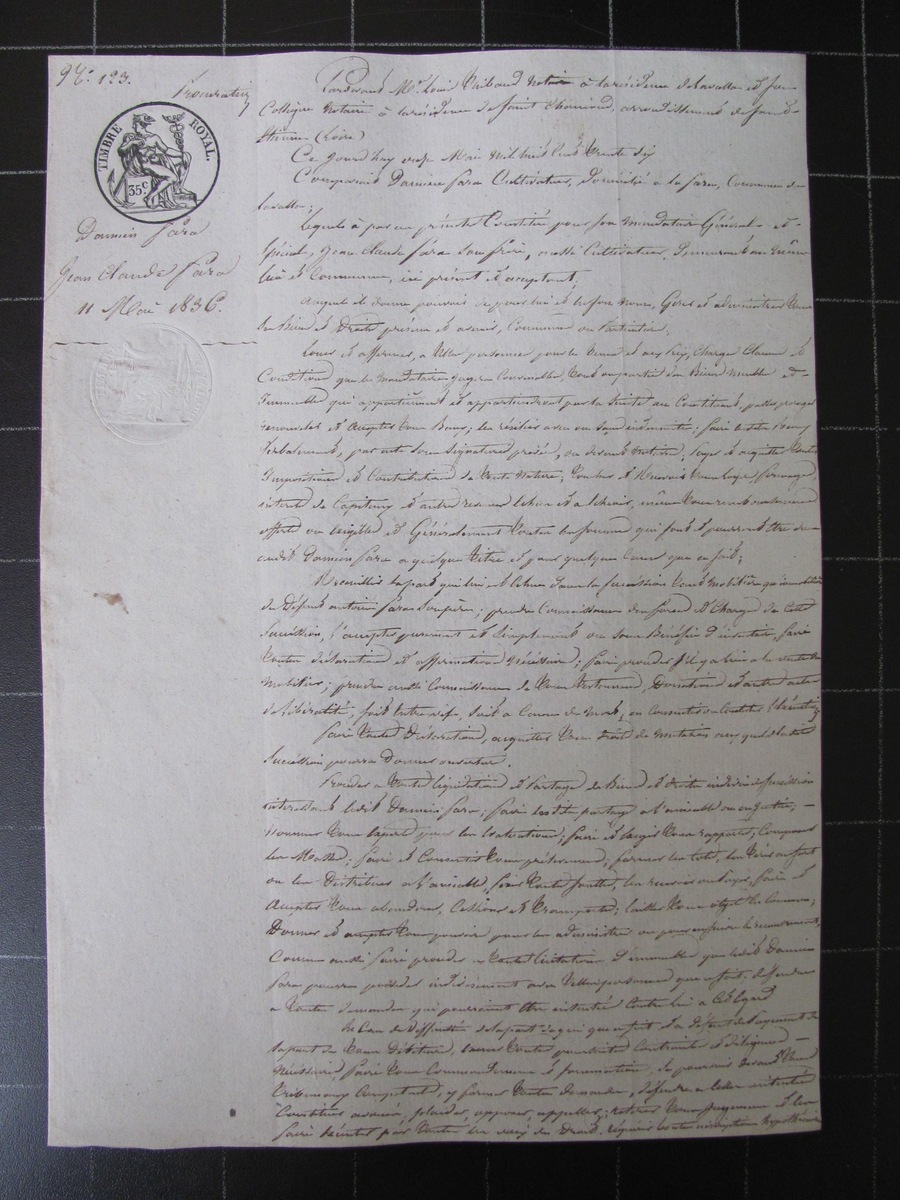 No. 123.
Procuration
TIMBRE ROYAL.
35 c.
Damien Fara
Jean Claude Fara
11 Mai 1836.
Pardevant Me Louis Thibaud Notaire à la résidence de Lavalla et son
Collègue Notaire à la résidence de Saint Chamond, arrondissement de Saint
Etienne (Loire)
Ce jourd'huy onze Mai mil huit cent trente six
Comparait Damien Fara Cultivateur, domicilié à la Fara, Commune de
Lavalla;
Lequel a par ces présentes Constitué pour son mandataire Général et
Spécial, Jean Claude Fara son frère, aussi Cultivateur, demeurant au même
lieu et Commune, ici présent et acceptant;
Auquel il donne pouvoir de pour lui et en son nom, Gérer et administrer tous
les Biens et Droits présens et à venir, Communs ou Particuliers,
Louer et affermer, à telles personnes pour le tems et aux prix, Charges Clauses et
Conditions que le mandataire jugera Convenables, tout ou partie des Biens meubles et
Immeubles qui appartiennent et appartiendront par la suite au Constituant, passer proroger
renouveler et accepter tous Baux; les résilier avec ou sans indemnités; faire
verbalement, par acte sous signatures privées, ou devant Notaire, payer et acquitter toutes
Impositions et Contributions de toute Nature; toucher et Recevoir tous loyers fermages
intérêts de Capitaux et autres revenus échus et à échoir, même tous remboursemens
offerts ou exigibles et Généralement toutes les sommes qui sont et pourront être dues
audit Damien Fara à quelque titre et pour quelque cause que ce soit;
Recueillir la part qui lui est échue dans la succession tant mobilière qu'immobilière
de défunt Antoine Fara son père; prendre Connaissance des forces et Charges de cette
Succession, l'accepter purement et simplement ou sous Bénéfice d'inventaire, faire
toutes déclarations et affirmations nécessaires; faire procéder s'il y a lieu à la vente du
Mobilier; prendre aussi Connaissance de tous testamens, Donations et autres actes
de libéralité, soit entre vifs, soit à cause de mort, en Consentir ou Contester l'exécution
faire toutes déclarations, acquitter tous droits de mutations auxquels ladite
Succession pourra donner ouverture.
Procéder à toutes liquidations et Partages des Biens et droits indivis de succession
intéressant ledit Damien Fara; faire lesdits partages à l'amiable ou en justice,
nommer tous experts pour les estimations; faire et exiger tous rapports; Composer
les Masses; faire et Consentir tous prélèvemens; former les lots, les tirer au sort
ou les distribuer à l'amiable, fixer toutes soultes, les recevoir ou payer, faire et
accepter tous abandons, Cessions et transports; laisser tous objets en Commun;
Donner et accepter tous pouvoirs pour les administrer ou pour en suivre le recouvrement,
Comme aussi faire procéder à toutes licitations d'immeubles que ledit Damien
Fara pourra posséder indivisément avec telles personnes que ce soit, défendre
à toutes demandes qui pourraient être intentées Contre lui à Cet Egard
En Cas de difficultés de la part de qui que ce soit et à défaut de payement de
la part de tous débiteurs, exercer toutes poursuites Contraintes et diligences
Nécessaires, faire tous Commandemens et sommations, se pourvoir devant tous
tribunaux compétens, y former toutes demandes, défendre à celles intentées
Constituer avoués, plaider, opposer, appeller; retirer tous jugemens et les
faire exécuter par toutes les voies de droit, requérir toutes inscriptions hypothécaires